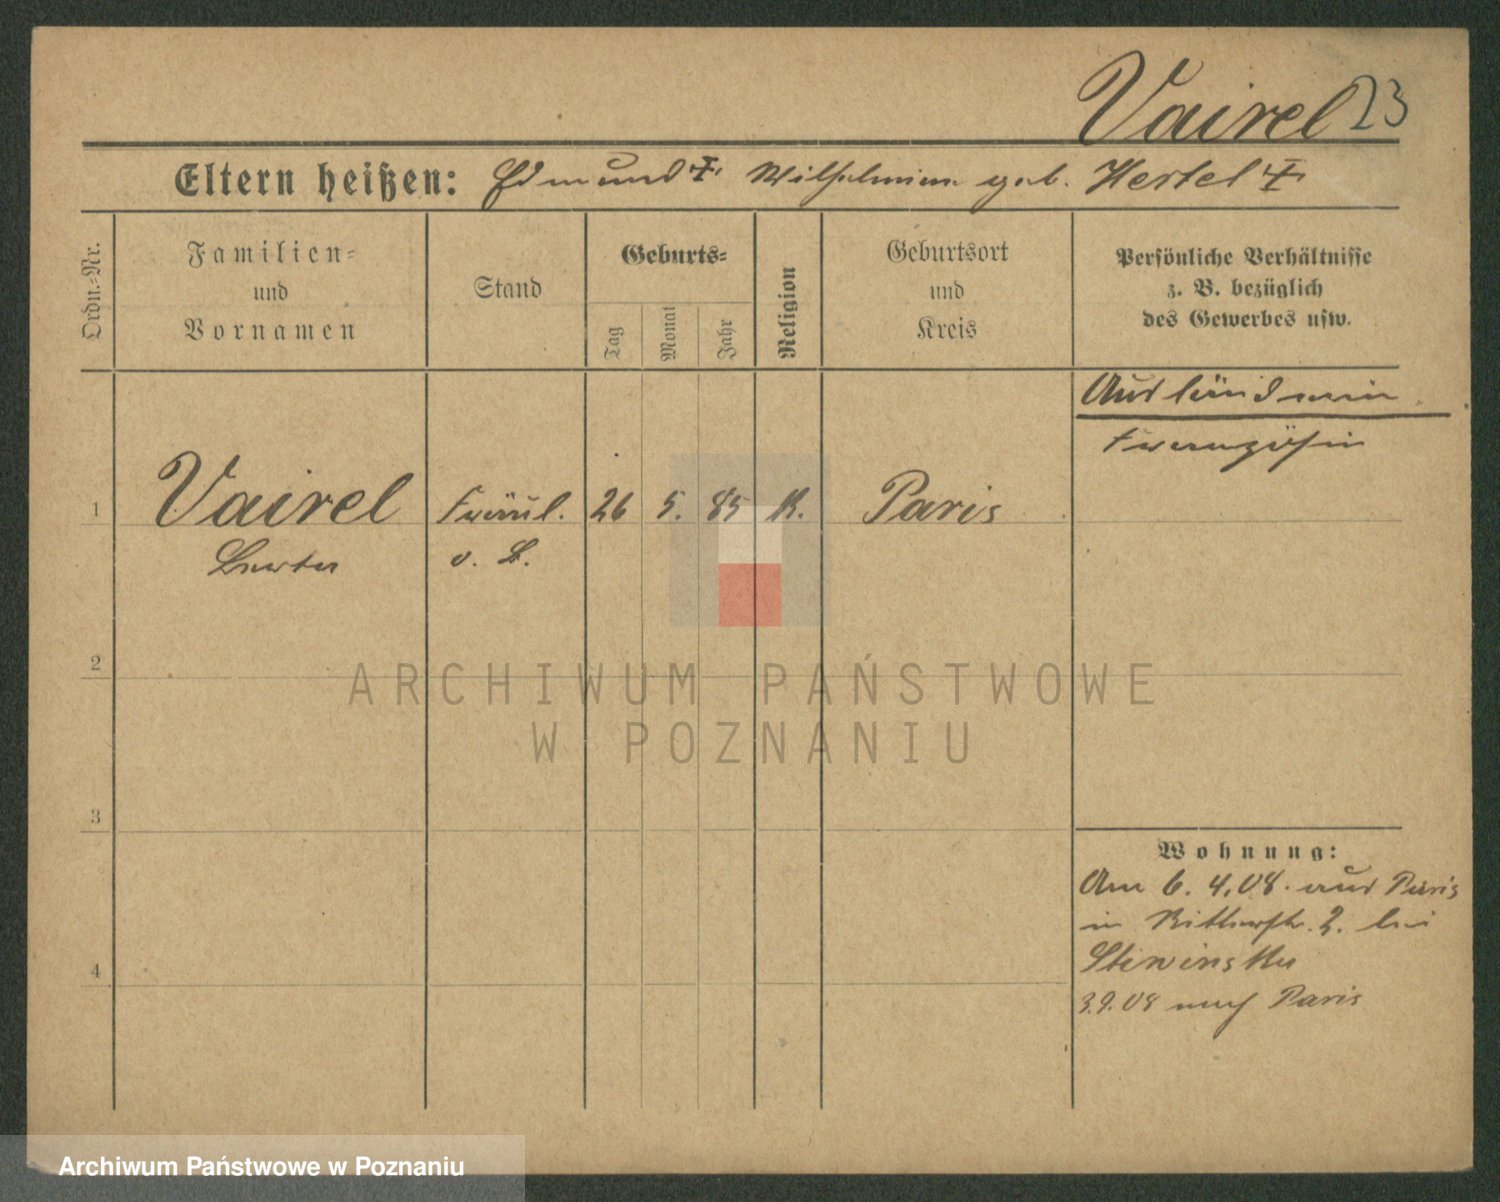 Vairel 23
Eltern heißen: Edmund Wilhelmine geb. Hertel
Ordn.=Nr.
Familien=
und
Vornamen
Stand
Geburts=
Tag
Monat
Jahr
Religion
Geburtsort
und
Kreis
Persönliche Verhältnisse
z. B. bezüglich
des Gewerbes usw.
Ausländerin
Französin
1 Vairel Fräul. 26 5. 85 K. Paris
Berta o. B.
2
ARCHIWUM PAŃSTWOWE
W POZNANIU
3
Wohnung:
Am 6. 4. 08. aus Paris
in Ritterstr. 2. bei
3.9.08 nach Paris
4
Archiwum Państwowe w Poznaniu